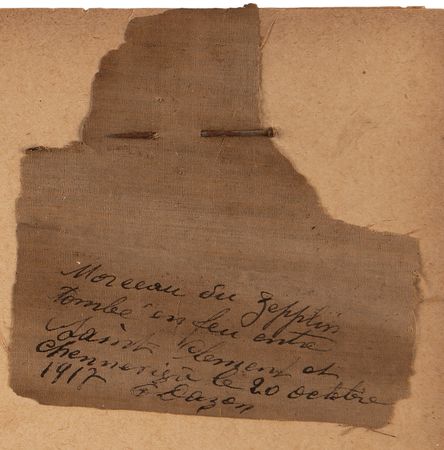 Morceau du Zepplin
tombé en feu entre
Saint Clement et
Chenneviè le 20 octobre
1917 Dazon